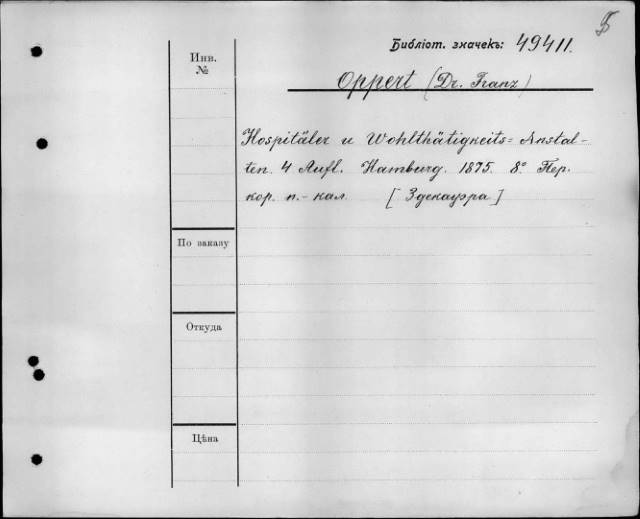 Б
Библіот. значекъ: 49411.
Инв.
№
Oppert (Dr. Franz)
Hospitäler u Wohlthätigkeits=Anstal-
ten. 4 Aufl. Hamburg. 1875. 8° Пер.
кор. п.-кал [Здекауэра]
По заказу
Откуда
Цѣна